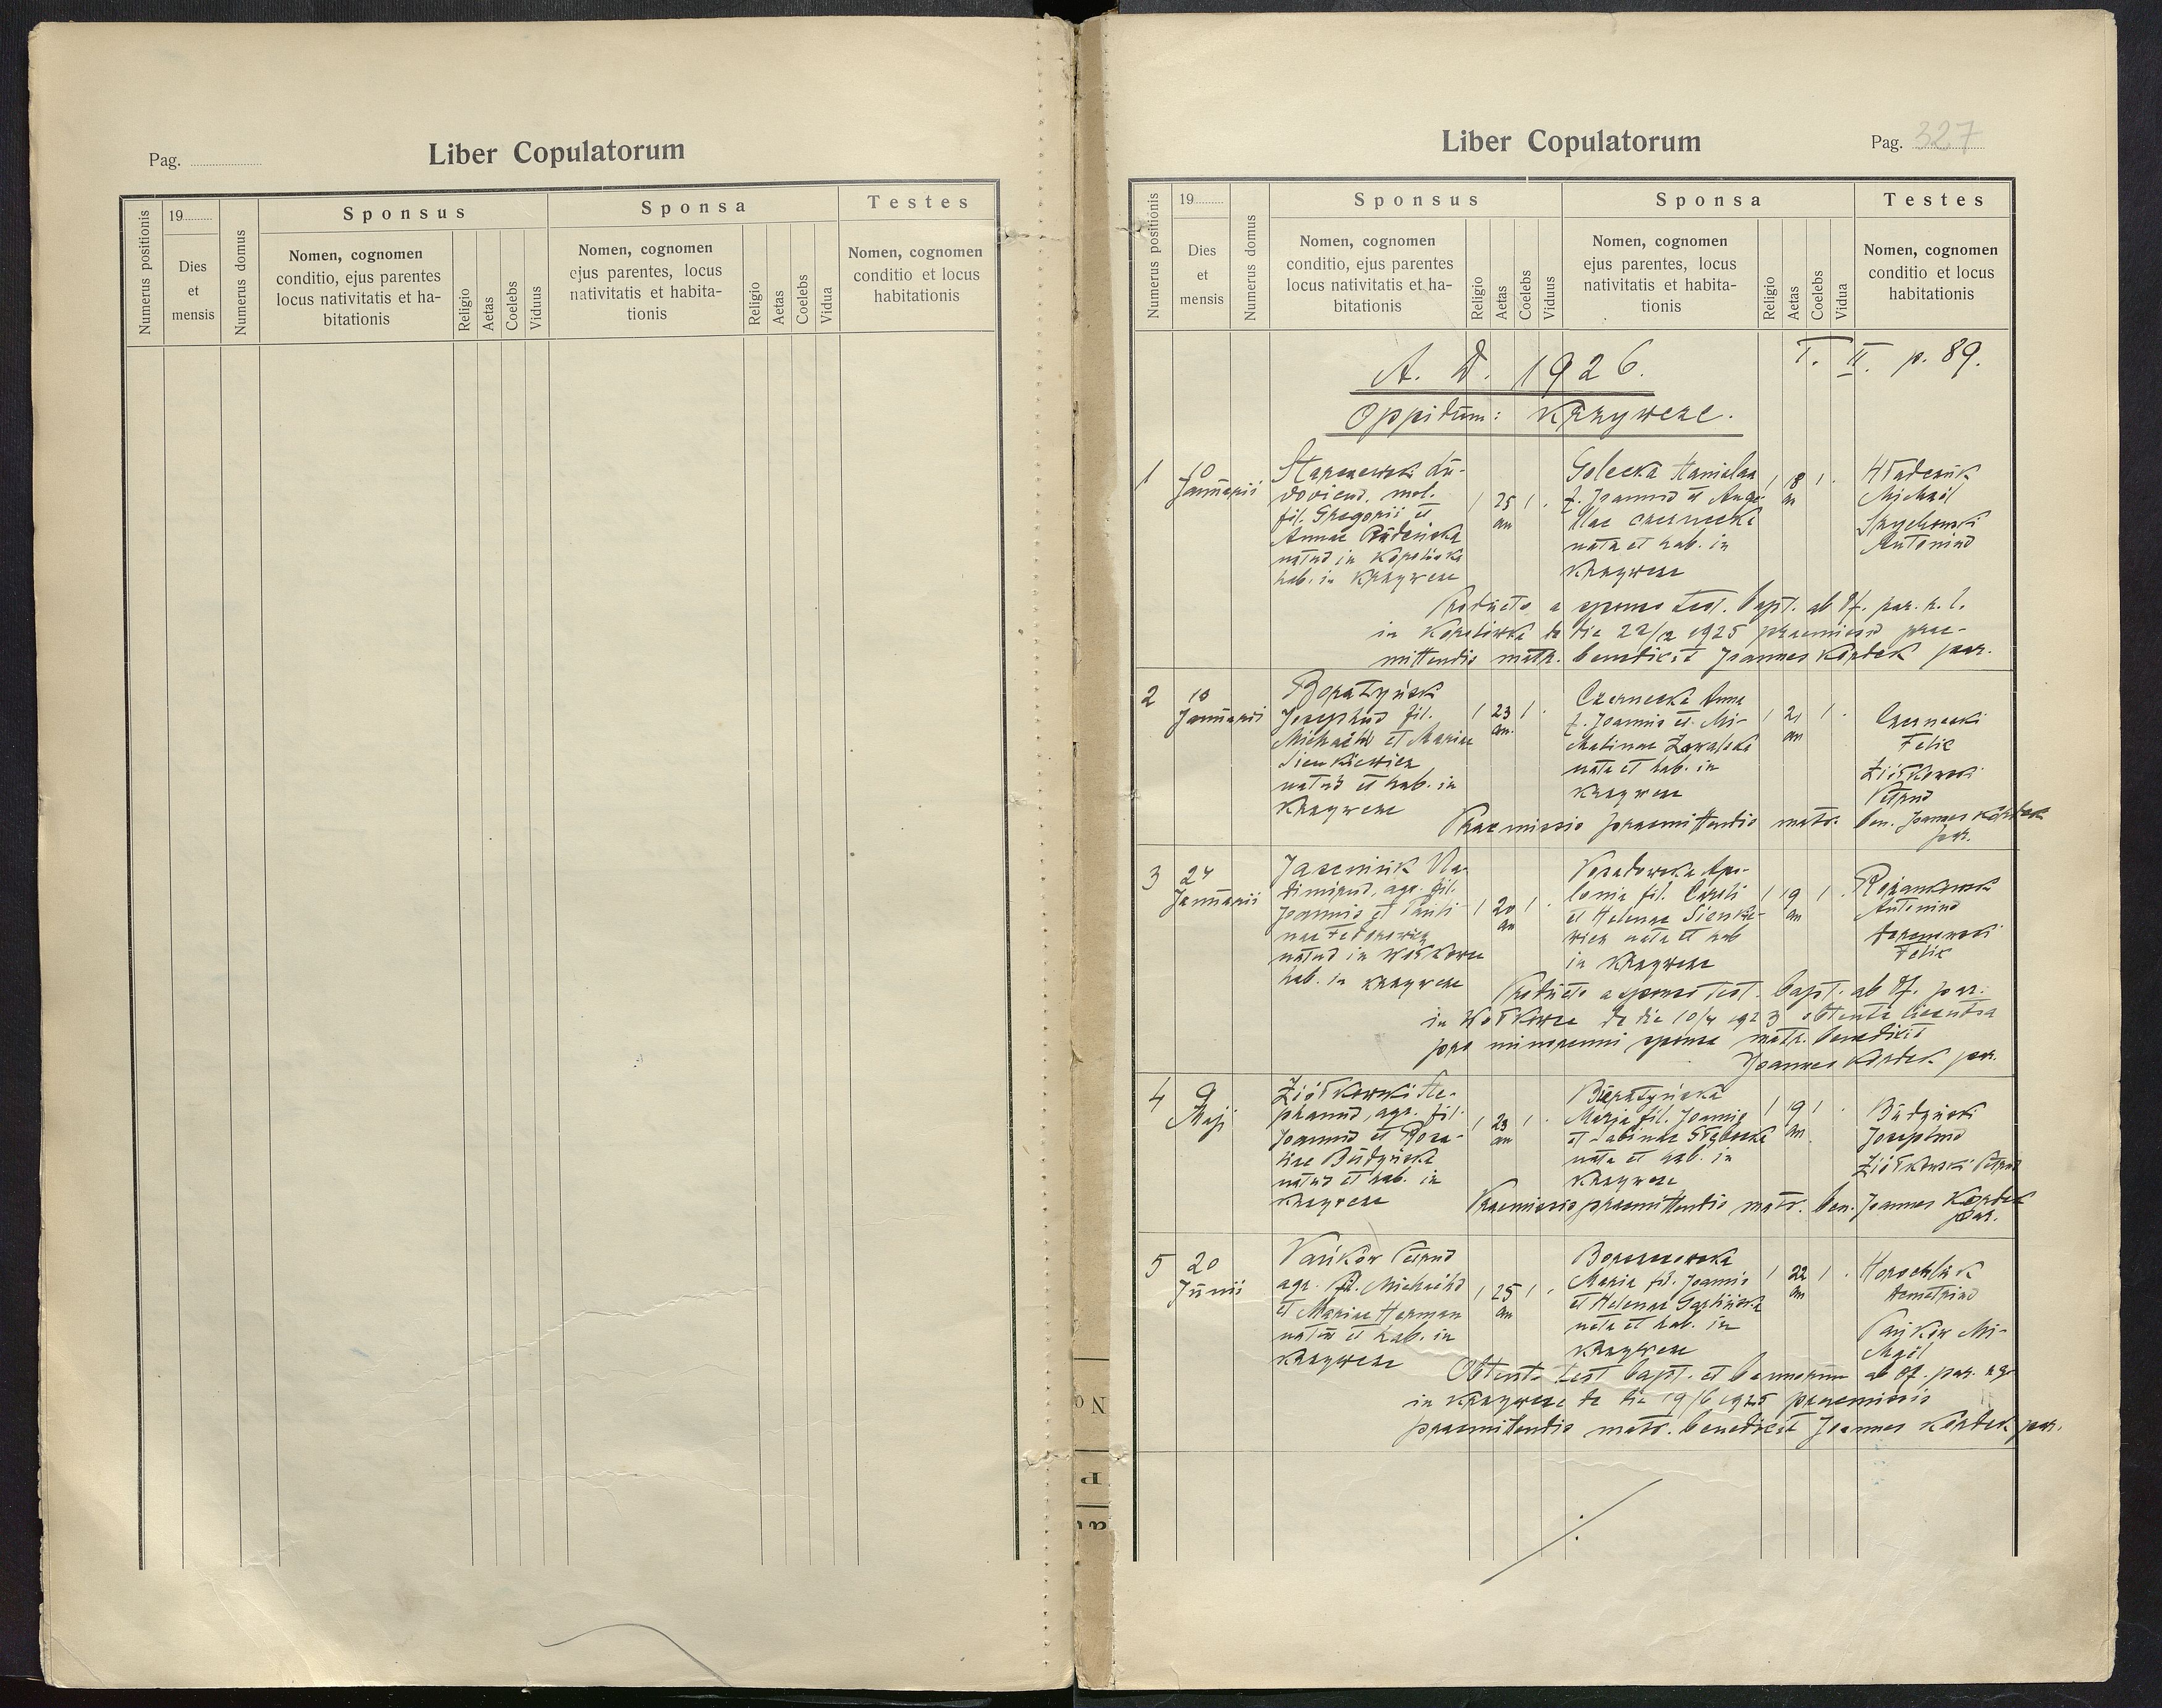 Pag.
Liber Copulatorum
Numerus positionis
19
Dies
et
mensis
Numerus domus
Sponsus
Nomen, cognomen
conditio, ejus parentes
locus nativitatis et ha-
bitationis
Religio
Aetas
Coelebs
Viduus
Sponsa
Nomen, cognomen
ejus parentes, locus
nativitatis et habita-
tionis
Religio
Aetas
Coelebs
Vidua
Testes
Nomen, cognomen
conditio et locus
habitationis
Liber Copulatorum
Pag. 327
Numerus positionis
19
Dies
et
mensis
Numerus domus
Sponsus
Nomen, cognomen
conditio, ejus parentes
locus nativitatis et ha-
bitationis
Religio
Aetas
Coelebs
Viduus
Sponsa
Nomen, cognomen
ejus parentes, locus
nativitatis et habita-
tionis
Religio
Aetas
Coelebs
Vidua
Testes
Nomen, cognomen
conditio et locus
habitationis
A. D. 1926.
T. II p. 89.
Oppidum: Krzywcze.
1
10
Januarii
Lu-
dovicus, mol.
fil. Gregorii et
Annae
natus in
hab. in Krzywcze
25
an
Golecka
f. Joannis et Ange-
llae Czernecka
nata et hab. in
Krzywcze
18
an
Michael
Antonius
Producto a sponso test. bapt. ab Of. par. r. l.
in de die 22/12 1925 praemissis prae-
mittendis matr. benedixit Joannes Kordek par.
2
10
Januarii
Boratyński
Josephus fil.
Michaelis et Mariae
Sienkiewicz
natus et hab. in
Krzywcze
23
an.
Czernecka Anna
f. Joannis et Mi-
chalinae Zawalska
nata et hab. in
Krzywcze
21
an
Czernecki
Felix
Ziółkowski
Petrus
Praemissis praemittendis matr. ben. Joannes Kordek
par.
3
24
Januarii
Jaremiuk Vla-
dimirus, agr. fil.
Joannis et Pauli-
nae Fedorowicz
natus in Wołkowce
hab. in Krzywcze
20
an
Apo-
lonia fil. Caroli
et Helenae Sienkie-
wicz nata et hab
in Krzywcze
19
an
Antonius
Felix
Producto a sponso test. bapt. ab Of. par.
in Wołkowce de die 10/4 1923 obtenta licentia
pro minorenni sponsa matr. benedixit
Joannes Kordek par.
4
9
Maji
Ziółkowski Ste-
phanus, agr. fil.
Joannis et Rosa-
liae Budzyńska
natus et hab. in
Krzywcze
23
an
Maria fil. Joannis
et Sabinae Głębocka
nata et hab. in
Krzywcze
19
an.
Budzyński
Josephus
Ziółkowski Petrus
Praemissis praemittendis matr. ben. Joannes Kordek
par.
5
20
Junii
Petrus
agr. fil. Michaelis
et Mariae Herman
natus et hab. in
Krzywcze
25
an
Maria fil. Joannis
et Helenae
nata et hab. in
Krzywcze
22
an
Demetrius
Mi-
Obtento test bapt. et bannorum ab Of. par. r. gr
in Krzywcze de die 19/6 1925 praemissis
praemittendis matr. benedixit Joannes Kordek par.